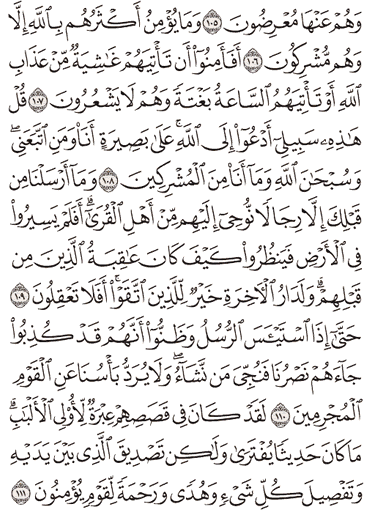 وَهُمْ عَنْهَا مُعْرِضُونَ ١٠٥ وَمَا يُؤْمِنُ أَكْثَرُهُم بِاللَّهِ إِلَّا
وَهُم مُّشْرِكُونَ ١٠٦ أَفَأَمِنُوا أَن تَأْتِيَهُمْ غَاشِيَةٌ مِّنْ عَذَابِ
اللَّهِ أَوْ تَأْتِيَهُمُ السَّاعَةُ بَغْتَةً وَهُمْ لَا يَشْعُرُونَ ١٠٧ قُلْ
هَٰذِهِ سَبِيلِي أَدْعُو إِلَى اللَّهِ ۚ عَلَىٰ بَصِيرَةٍ أَنَا وَمَنِ اتَّبَعَنِي ۖ
وَسُبْحَانَ اللَّهِ وَمَا أَنَا مِنَ الْمُشْرِكِينَ ١٠٨ وَمَا أَرْسَلْنَا مِن
قَبْلِكَ إِلَّا رِجَالًا نُّوحِي إِلَيْهِم مِّنْ أَهْلِ الْقُرَىٰ ۗ أَفَلَمْ يَسِيرُوا
فِي الْأَرْضِ فَيَنظُرُوا كَيْفَ كَانَ عَاقِبَةُ الَّذِينَ مِن
قَبْلِهِمْ ۗ وَلَدَارُ الْآخِرَةِ خَيْرٌ لِّلَّذِينَ اتَّقَوْا ۗ أَفَلَا تَعْقِلُونَ ١٠٩
حَتَّىٰ إِذَا اسْتَيْئَسَ الرُّسُلُ وَظَنُّوا أَنَّهُمْ قَدْ كُذِبُوا
جَاءَهُمْ نَصْرُنَا فَنُجِّيَ مَن نَّشَاءُ ۖ وَلَا يُرَدُّ بَأْسُنَا عَنِ الْقَوْمِ
الْمُجْرِمِينَ ١١٠ لَقَدْ كَانَ فِي قَصَصِهِمْ عِبْرَةٌ لِّأُولِي الْأَلْبَابِ ۗ
مَا كَانَ حَدِيثًا يُفْتَرَىٰ وَلَٰكِن تَصْدِيقَ الَّذِي بَيْنَ يَدَيْهِ
وَتَفْصِيلَ كُلِّ شَيْءٍ وَهُدًى وَرَحْمَةً لِّقَوْمٍ يُؤْمِنُونَ ١١١